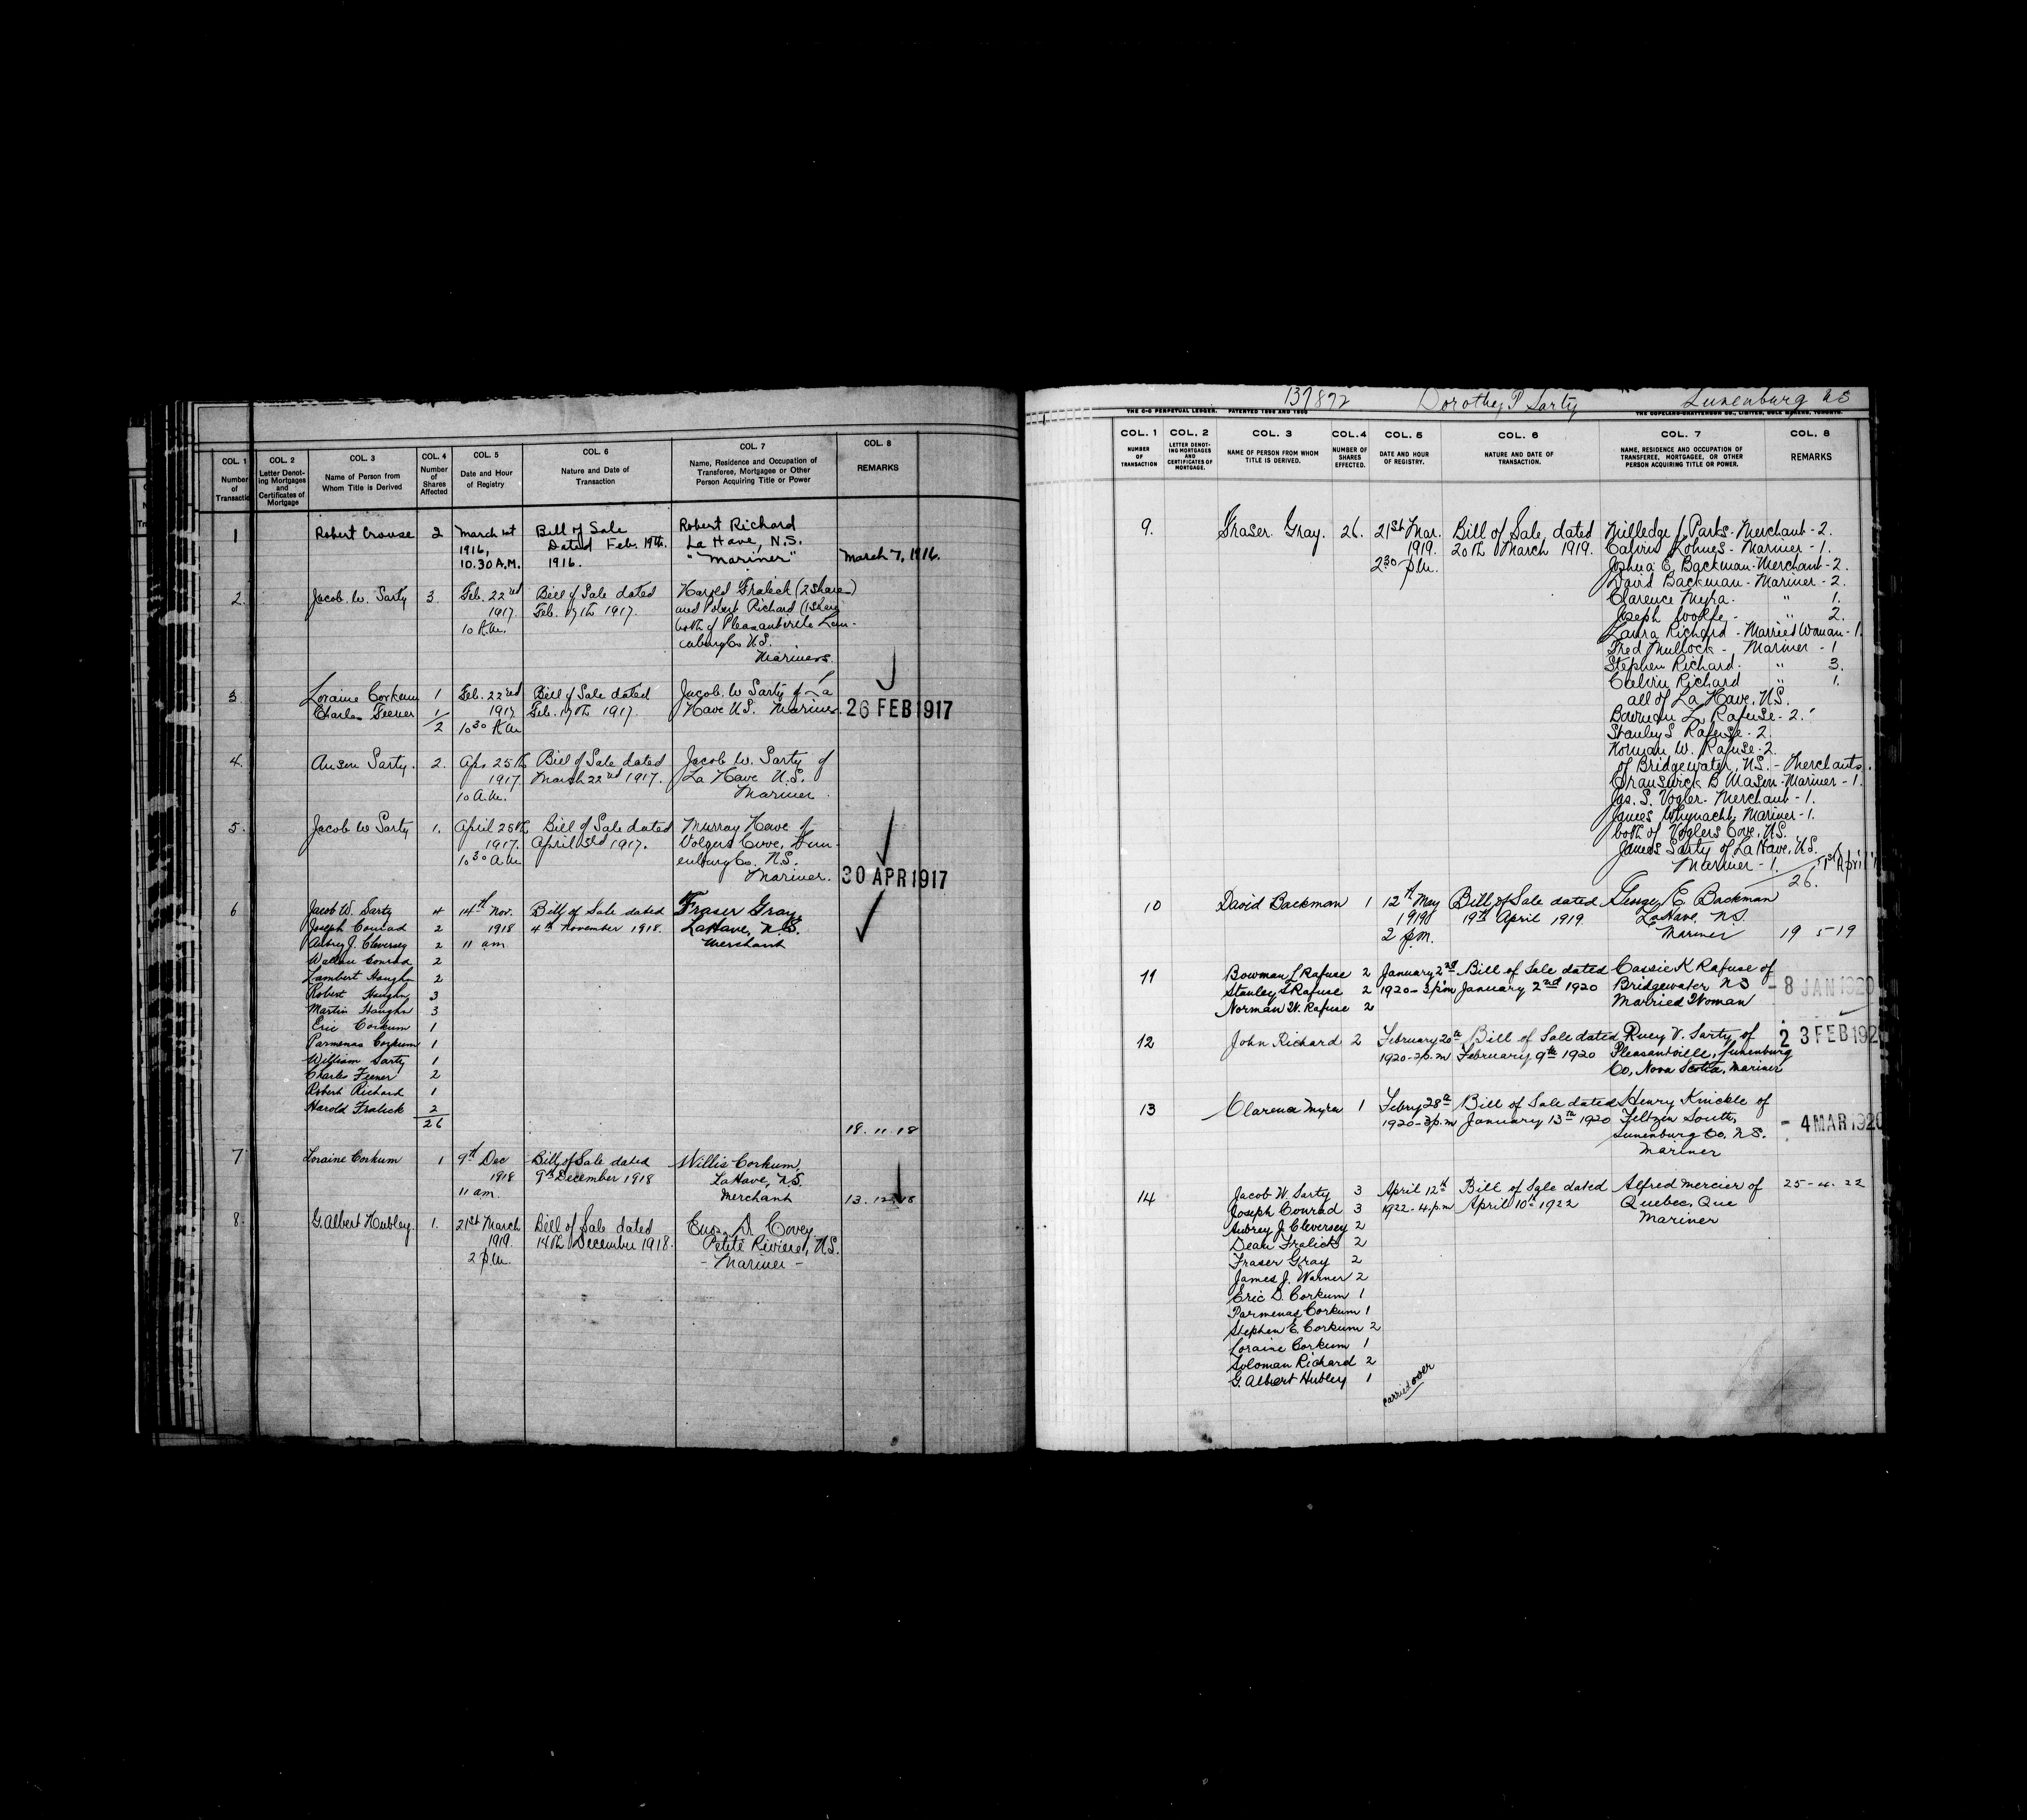 COL. 1 COL. 2 COL. 3 COL. 4 COL. 5 COL. 6 COL. 7 COL. 8
Number of Transactio
Letter Denot-
ing Mortgages
and
Certificates of
Mortgage
Name of Person from
Whom Title is Derived
Number
of
Shares
Affected
Date and Hour
of Registry
Nature and Date of
Transaction
Name, Residence and Occupation of
Transferee, Mortgagee or Other
Person Acquiring Title or Power
REMARKS
1 Robert Crouse 2 March 1st Bill of Sale Robert Richard
1916, Dated Feb. 19th. La Have, N.S.
10.30 A.M. 1916. "Mariner" March 7, 1916.
2. Jacob. W. Sarty 3. Feb. 22nd Bill of Sale dated Harold Fralick (2 Shares)
1917 Feb. 17th 1917. and Robert Richard (1 Share)
10 A.M. both of Pleasantville Lun-
enburg Co N.S.
Mariners.
3. Loraine Corkum 1 Feb. 22nd Bill of Sale dated Jacob. W Sarty of La
Charles Feener 1 1917 Feb. 17th 1917. Have N.S. Mariner. 26 FEB 1917
2 10 30 A.M
4. Anson Sarty. 2. Apr 25th Bill of Sale dated Jacob W. Sarty of
1917. March 22nd 1917. La Have N.S.
10 A.M. Mariner.
5. Jacob W Sarty 1. April 25th Bill of Sale dated Murray Howe of
1917. April 1917. Volgers Cove, Lun-
10 30 A.M enburg Co. N.S.
Mariner. 30 APR 1917
6 Jacob W. Sarty 4 14th Nov. Bill of Sale dated Fraser Gray,
Joseph Conrad 2 1918 4th November 1918. LaHave, N.S.
Aubrey J. Cleversey 2 11 am. Merchant
Conrad 2
Lambert Haughn 2
Robert Haughn 3
Martin Haughn 3
Eric Corkum 1
Parmenas Corkum 1
William Sarty 1
Charles Feener 2
Robert Richard 1
Harold Fralick 2
26
18. 11. 18
7 Loraine Corkum 1 9th Dec Bill of Sale dated Willis Corkum,
1918 9th December 1918 LaHave, N.S.
11 am. Merchant 13. 12. 18
8. G. Albert Hubley. 1. 21st March Bill of Sale dated D. Covey
1919. 14th December 1918. Petite Riviere, N.S.
2 p.m. - Mariner -
137872 Dorothy P Sarty Lunenburg NS
THE C-C PERPETUAL LEDGER. PATENTED 1898 AND 1900 THE COPELAND-CHATTERSON CO., LIMITED, SOLE MAKERS, TORONTO.
COL. 1 COL. 2 COL. 3 COL. 4 COL. 5 COL. 6 COL. 7 COL. 8
NUMBER
OF
TRANSACTION
LETTER DENOT-
ING MORTGAGES
AND
CERTIFICATES OF
MORTGAGE.
NAME OF PERSON FROM WHOM
TITLE IS DERIVED.
NUMBER OF
SHARES
EFFECTED.
DATE AND HOUR
OF REGISTRY.
NATURE AND DATE OF
TRANSACTION.
NAME, RESIDENCE AND OCCUPATION OF
TRANSFEREE, MORTGAGEE, OR OTHER
PERSON ACQUIRING TITLE OR POWER.
REMARKS
9. Fraser Gray. 26. 21st Mar. Bill of Sale, dated Milledge J. Parks - Merchant - 2.
1919. 20th March 1919. Calvin Lohnes - Mariner - 1.
2 30 p.m. Joshua E. Backman - Merchant - 2.
David Backman - Mariner - 2.
Clarence Myra - " 1.
Joseph Woolfe - " 2.
Laura Richard - Married Woman - 1.
Fred Mullock - Mariner - 1
Stephen Richard - " 3.
Calvin Richard " 1.
all of La Have, N.S.
Bowman L. Rafuse - 2.
Stanley S Rafuse - 2.
Norman W. Rafuse - 2
of Bridgewater, N.S. - Merchants.
B Mason - Mariner - 1.
Jas. S. Vogler - Merchant - 1.
James Whynacht, Mariner - 1.
both of Voglers Cove, N.S.
James Sarty of La Have, N.S.
Mariner - 1.
26.
10 David Backman 1 12th May Bill of Sale dated George E. Backman
1919 19th April 1919 LaHave, N.S.
2 p.m. Mariner 19 5 19
11 Bowman L Rafuse 2 January 2nd Bill of Sale dated Cassie K Rafuse of
Stanley S Rafuse 2 1920 - 3 p.m January 2nd 1920 Bridgewater NS - 8 JAN 1920
Norman W. Rafuse 2 Married Woman
12 John Richard 2 February 20th Bill of Sale dated V. Sarty of 23 FEB 192
1920 - 2 p.m February 9th 1920 Pleasantville, Lunenburg
Co, Nova Scotia, Mariner
13 Clarence Myra 1 Febry 28th Bill of Sale dated Henry Knickle of
1920 - 3 p.m January 13th 1920 Feltzen South, - 4 MAR 1920
Lunenburg Co. N.S.
Mariner
14 Jacob W. Sarty 3 April 12th Bill of Sale dated Alfred Mercier of 25-4.22
Joseph Conrad 3 1922 - 4. p.m April 10th 1922 Quebec, Que
Aubrey J. Cleversey 2 Mariner
Dean Fralick 2
Fraser Gray 2
James J. Warner 2
Eric D. Corkum 1
Parmenas Corkum 1
Stephen E. Corkum 2
Loraine Corkum 1
Soloman Richard 2
G. Albert Hubley 1
carried over